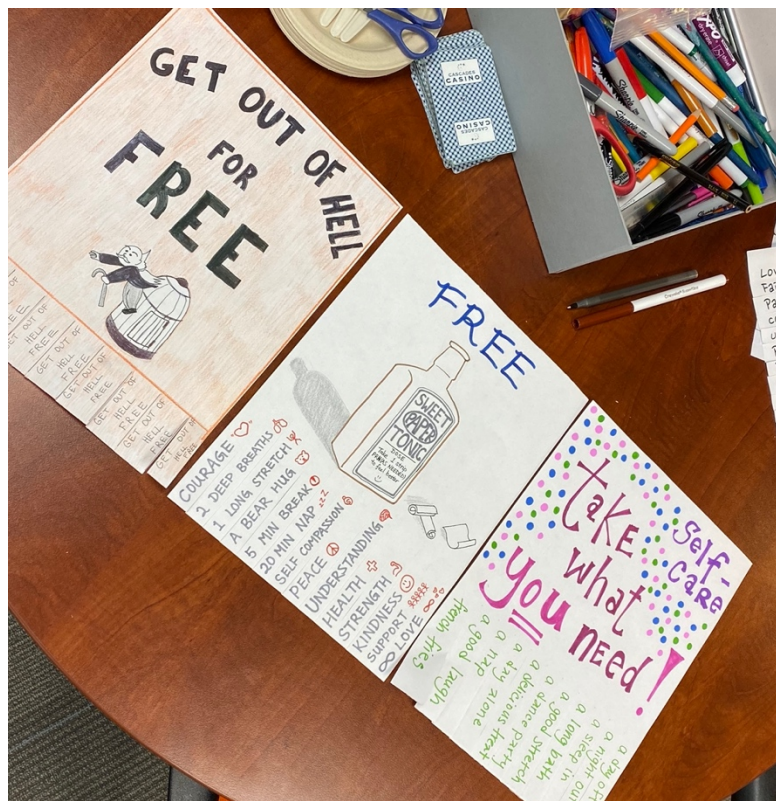 GET OUT OF HELL
FOR
FREE
FREE
GET OUT OF
HELL
FREE
GET OUT OF
HELL
FREE
GET OUT OF
HELL
FREE
GET OUT OF
HELL
FREE
GET OUT OF
HELL
FREE
GET OUT OF
HELL
FREE
FREE
SWEET
PAPER
TONIC
DOSE
Take 1 strip
to feel better
COURAGE
2 DEEP BREATHS
1 LONG STRETCH
A BEAR HUG
5 MIN BREAK
20 MIN NAP zzz
SELF COMPASSION
PEACE
UNDERSTANDING
HEALTH
STRENGTH
KINDNESS
SUPPORT
∞ LOVE ∞
Self-
CARE
take
what
you
need!
french fries
a good laugh
a nap
a day alone
a delicious treat
a dance party
a good stretch
a long bath
a sleep in
a night out
a day off
CASCADES
CASINO
CASCADES
CASINO
Sharpie
EXPO